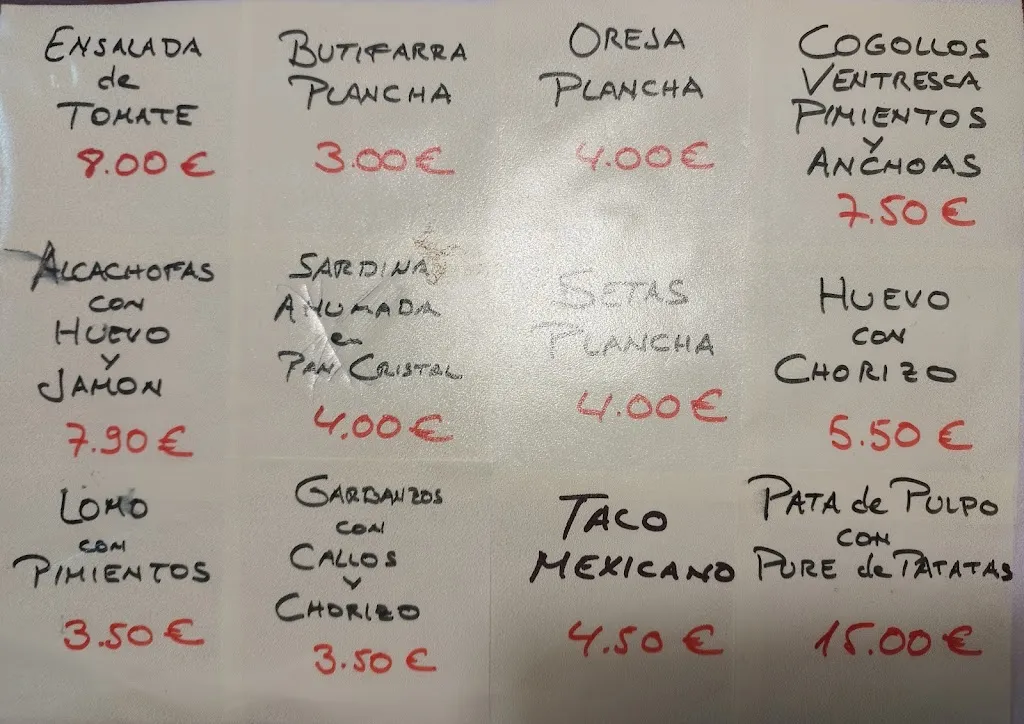 ENSALADA
de
TOMATE
8.00 €
BUTIFARRA
PLANCHA
3.00 €
OREJA
PLANCHA
4.00 €
COGOLLOS
VENTRESCA
PIMIENTOS
Y
ANCHOAS
7.50 €
ALCACHOFAS
CON
HUEVO
Y
JAMON
7.90 €
SARDINA
AHUMADA
en
PAN CRISTAL
4.00 €
SETAS
PLANCHA
4.00 €
HUEVO
CON
CHORIZO
5.50 €
LOMO
CON
PIMIENTOS
3.50 €
GARBANZOS
CON
CALLOS
Y
CHORIZO
3.50 €
TACO
MEXICANO
4.50 €
PATA de PULPO
CON
PURE de PATATAS
15.00 €